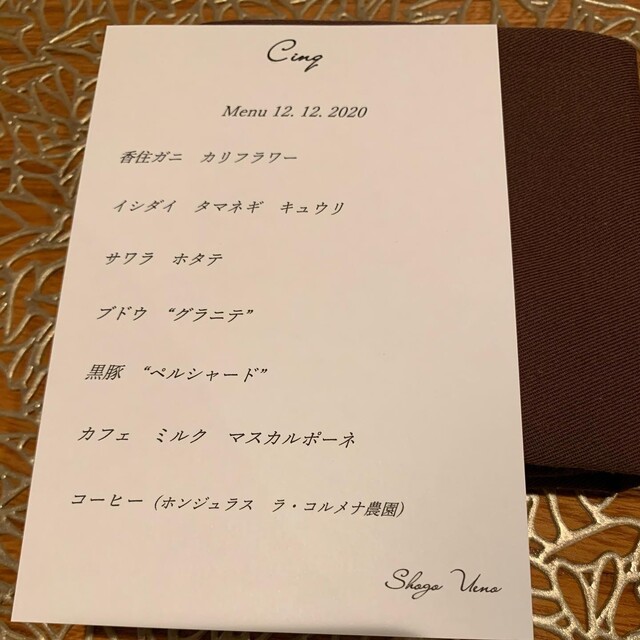 Cinq
Menu 12. 12. 2020
香住ガニ　カリフラワー
イシダイ　タマネギ　キュウリ
サワラ　ホタテ
ブドウ　“グラニテ”
黒豚　“ペルシャード”
カフェ　ミルク　マスカルポーネ
コーヒー（ホンジュラス　ラ・コルメナ農園）
Shogo Ueno